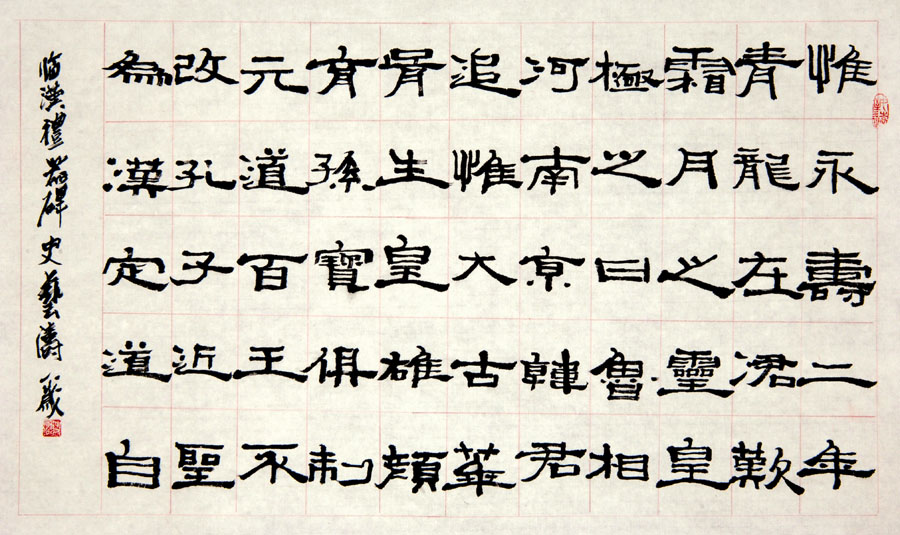 惟永壽二年
青龍在涒歎
霜月之靈皇
極之日魯相
河南京韓君
追惟大古華
胥生皇雄顏
育孫寶俱制
元道百王不
改孔子近聖
為漢定道自
臨漢禮器碑 史藝濤 八歲